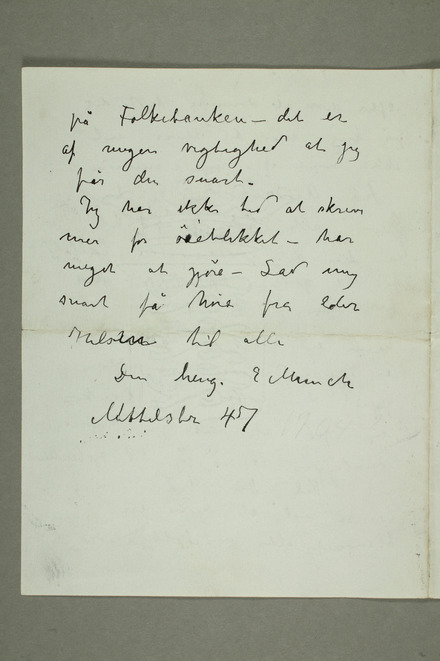 på Folkebanken – det er
af megen vigtighed at jeg
får den snart.
Jeg har ikke tid at skrive
mer for öieblikket – har
meget at gjöre – Lad mig
snart få höre fra eder
Hilsen til alle
Din heng. E Munch
Mittelstr 45